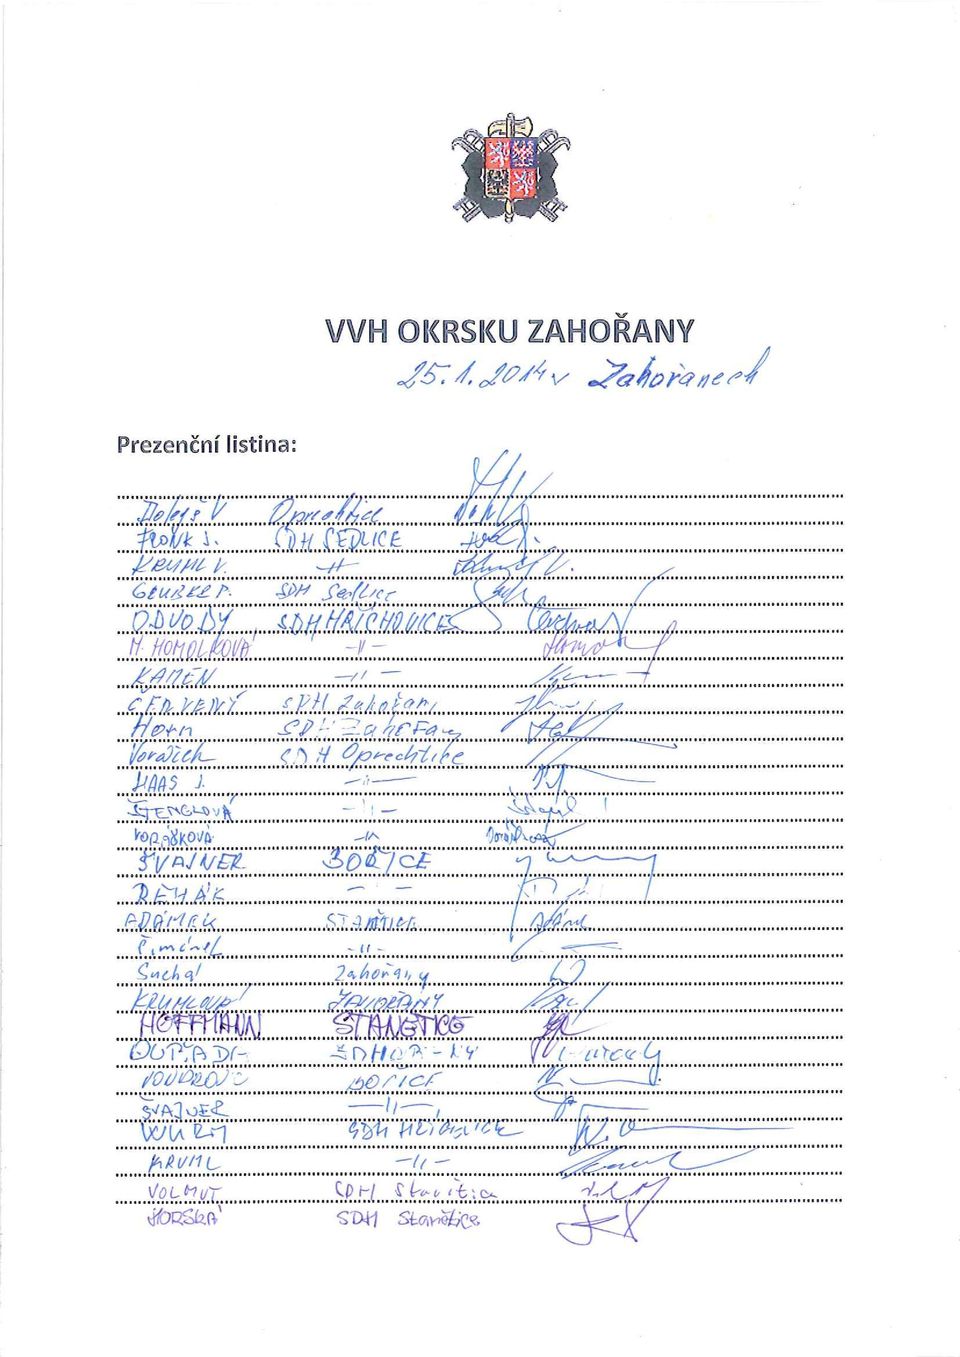 VVH OKRSKU ZAHOŘANY
25.1.2014 v Zahořanech
Prezenční listina:
Dolejš V Oprechtice
FRONK J. SDH SEDLICE
KRUML V. -//-
GRUBER P. SDH Sedlice
ODVODY SDH HŘÍCHOVICE
M. HOMOLKOVÁ -//-
KAMEN -//-
ČERVENÝ SDH Zahořany
Horn SDH Zahořany
SDH Oprechtice
HAAS J. -//-
ŠTENGLOVÁ -//-
VORÁČKOVÁ -//-
ŠVAJNER BOŘICE
ŘEHÁK -//-
ADÁMEK STANĚTICE
-//-
Suchá Zahořany
KRUMLOVÁ ZAHOŘANY
HOFFMANN STANĚTICE
BOŘICE
ŠVAJNER -//-
WURM SDH
KRUML -//-
VOLMUT SDH
HORSKÁ SDH Stanětice